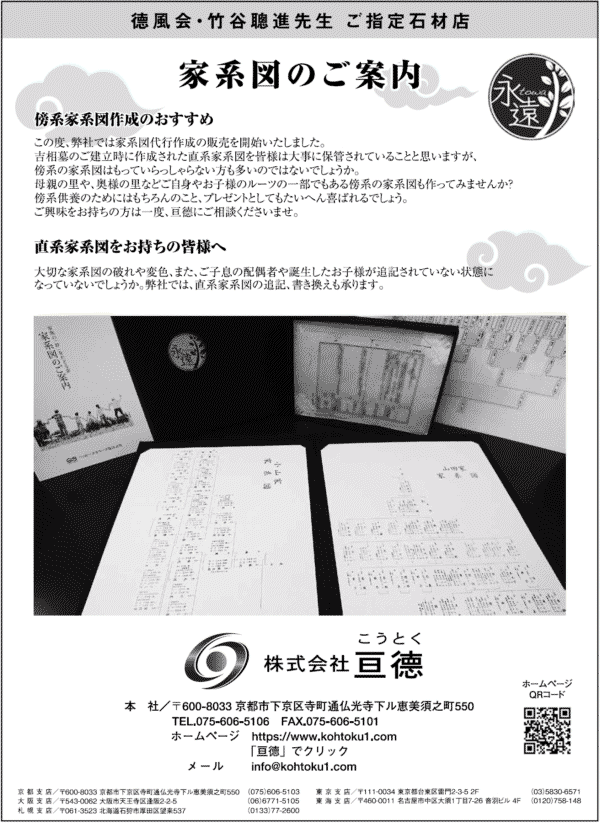 徳風会・竹谷聰進先生 ご指定石材店
家系図のご案内
永遠
towa
傍系家系図作成のおすすめ
この度、弊社では家系図代行作成の販売を開始いたしました。
吉相墓のご建立時に作成された直系家系図を皆様は大事に保管されていることと思いますが、
傍系の家系図はもっていらっしゃらない方も多いのではないでしょうか。
母親の里や、奥様の里などご自身やお子様のルーツの一部でもある傍系の家系図も作ってみませんか?
傍系供養のためにはもちろんのこと、プレゼントとしてもたいへん喜ばれるでしょう。
ご興味をお持ちの方は一度、亘徳にご相談くださいませ。
直系家系図をお持ちの皆様へ
大切な家系図の破れや変色、また、ご子息の配偶者や誕生したお子様が追記されていない状態に
なっていないでしょうか。弊社では、直系家系図の追記、書き換えも承ります。
家系図のご案内
永遠
小山家
家系図
山田家
家系図
こうとく
株式会社 亘徳
ホームページ
QRコード
本 社/〒600-8033 京都市下京区寺町通仏光寺下ル恵美須之町550
TEL.075-606-5106 FAX.075-606-5101
ホームページ https://www.kohtoku1.com
「亘徳」でクリック
メール info@kohtoku1.com
京都支店/〒600-8033 京都市下京区寺町通仏光寺下ル恵美須之町550 (075)606-5103
大阪支店/〒543-0062 大阪市天王寺区逢阪2-2-5 (06)6771-5105
札幌支店/〒061-3523 北海道石狩市厚田区望来537 (0133)77-2600
東京支店/〒111-0034 東京都台東区雷門2-3-5 2F (03)5830-6571
東海支店/〒460-0011 名古屋市中区大須1丁目7-26 音羽ビル 4F (0120)758-148